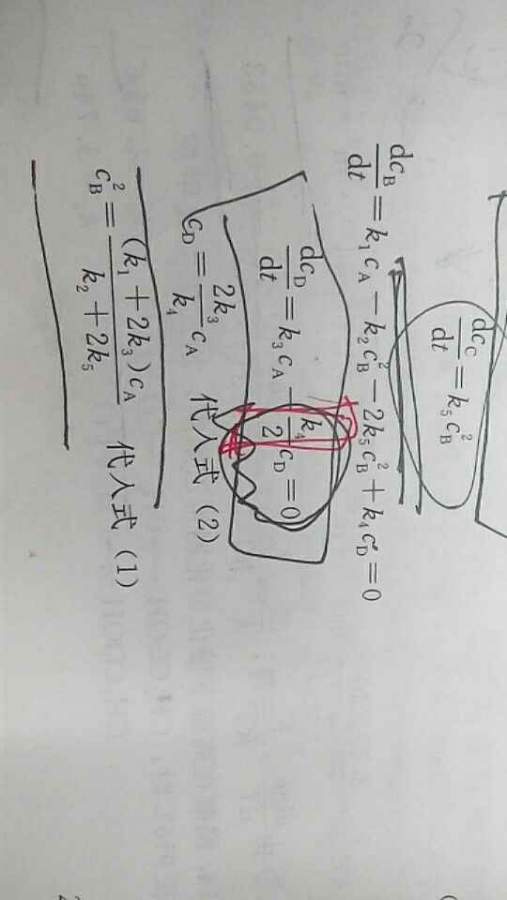 dc_C/dt = k_5 c_B^2
dc_B/dt = k_1 c_A − k_2 c_B^2 − 2k_5 c_B^2 + k_4 c_D = 0
dc_D/dt = k_3 c_A − k_4/2 c_D = 0
c_D = 2k_3/k_4 c_A 代入式 (2)
c_B^2 = (k_1 + 2k_3)c_A/k_2 + 2k_5 代入式 (1)